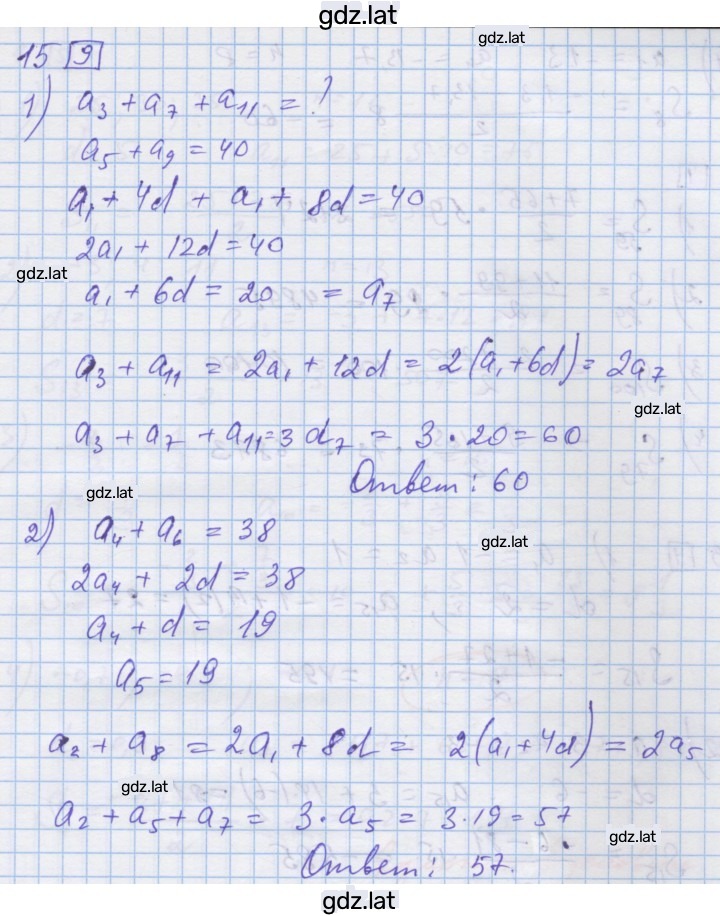 gdz.lat
gdz.lat
15 9
1) a₃ + a₇ + a₁₁ = ?
a₅ + a₉ = 40
a₁ + 4d + a₁ + 8d = 40
2a₁ + 12d = 40
gdz.lat
a₁ + 6d = 20 = a₇
a₃ + a₁₁ = 2a₁ + 12d = 2(a₁ + 6d) = 2a₇
gdz.lat
a₃ + a₇ + a₁₁ = 3 a₇ = 3 · 20 = 60
Ответ: 60
gdz.lat
2) a₄ + a₆ = 38
gdz.lat
2a₄ + 2d = 38
a₄ + d = 19
a₅ = 19
a₂ + a₈ = 2a₁ + 8d = 2(a₁ + 4d) = 2a₅
gdz.lat
a₂ + a₅ + a₇ = 3 · a₅ = 3 · 19 = 57
gdz.lat
Ответ: 57.
gdz.lat